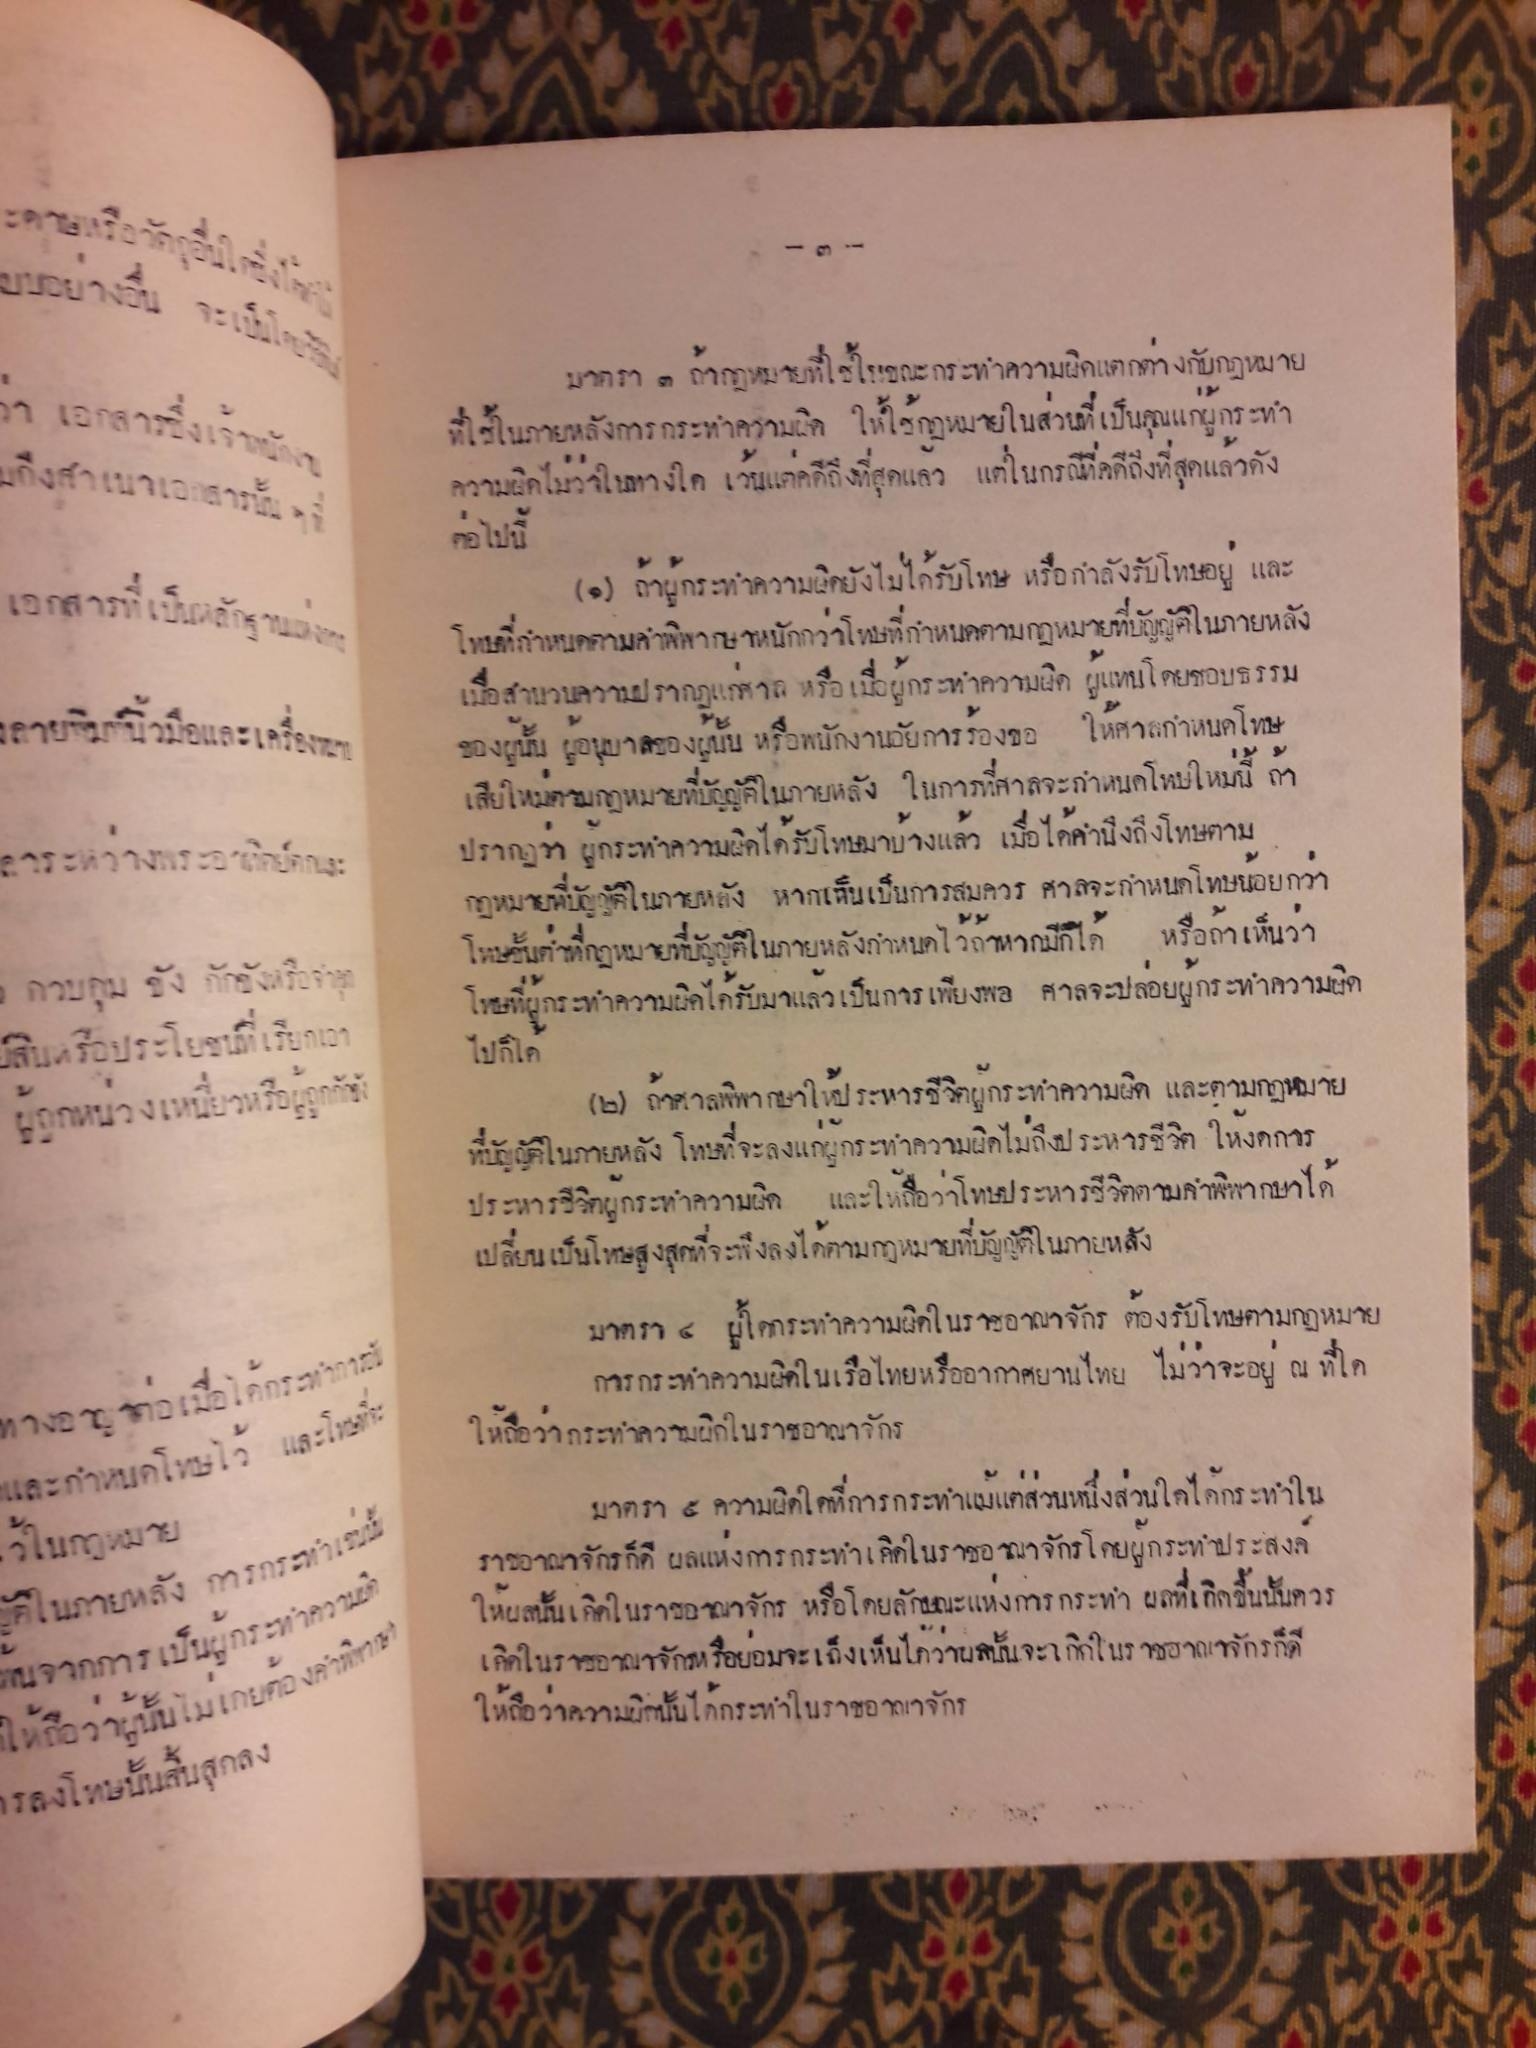 หรือวัตถุอื่นใดซึ่งได้ทำให้
แบบอย่างอื่น จะเป็นโดยวิธีพิมพ์
ว่า เอกสารซึ่งเจ้าพนักงาน
ถึงสำเนาเอกสารนั้น ๆ ที่
เอกสารที่เป็นหลักฐานแห่งการ
ลายพิมพ์นิ้วมือและเครื่องหมาย
ระหว่างพระอาทิตย์ตกและ
ควบคุม ขัง กักขังหรือจำคุก
สินหรือประโยชน์ที่เรียกเอา
ผู้ถูกหน่วงเหนี่ยวหรือผู้ถูกกักขัง
ทางอาญาต่อเมื่อได้กระทำการอัน
และกำหนดโทษไว้ และโทษที่จะ
ไว้ในกฎหมาย
ในภายหลัง การกระทำเช่นนั้น
พ้นจากการเป็นผู้กระทำความผิด
ให้ถือว่าผู้นั้นไม่เคยต้องคำพิพากษา
ลงโทษนั้นสิ้นสุดลง
- ๓ -
มาตรา ๓ ถ้ากฎหมายที่ใช้ในขณะกระทำความผิดแตกต่างกับกฎหมาย
ที่ใช้ในภายหลังการกระทำความผิด ให้ใช้กฎหมายในส่วนที่เป็นคุณแก่ผู้กระทำ
ความผิดไม่ว่าในทางใด เว้นแต่คดีถึงที่สุดแล้ว แต่ในกรณีที่คดีถึงที่สุดแล้วดัง
ต่อไปนี้
(๑) ถ้าผู้กระทำความผิดยังไม่ได้รับโทษ หรือกำลังรับโทษอยู่ และ
โทษที่กำหนดตามคำพิพากษาหนักกว่าโทษที่กำหนดตามกฎหมายที่บัญญัติในภายหลัง
เมื่อสำนวนความปรากฏแก่ศาล หรือเมื่อผู้กระทำความผิด ผู้แทนโดยชอบธรรม
ของผู้นั้น ผู้อนุบาลของผู้นั้น หรือพนักงานอัยการร้องขอ ให้ศาลกำหนดโทษ
เสียใหม่ตามกฎหมายที่บัญญัติในภายหลัง ในการที่ศาลจะกำหนดโทษใหม่นี้ ถ้า
ปรากฏว่า ผู้กระทำความผิดได้รับโทษมาบ้างแล้ว เมื่อได้คำนึงถึงโทษตาม
กฎหมายที่บัญญัติในภายหลัง หากเห็นเป็นการสมควร ศาลจะกำหนดโทษน้อยกว่า
โทษขั้นต่ำที่กฎหมายที่บัญญัติในภายหลังกำหนดไว้ถ้าหากมีก็ได้ หรือถ้าเห็นว่า
โทษที่ผู้กระทำความผิดได้รับมาแล้วเป็นการเพียงพอ ศาลจะปล่อยผู้กระทำความผิด
ไปก็ได้
(๒) ถ้าศาลพิพากษาให้ประหารชีวิตผู้กระทำความผิด และตามกฎหมาย
ที่บัญญัติในภายหลัง โทษที่จะลงแก่ผู้กระทำความผิดไม่ถึงประหารชีวิต ให้งดการ
ประหารชีวิตผู้กระทำความผิด และให้ถือว่าโทษประหารชีวิตตามคำพิพากษาได้
เปลี่ยนเป็นโทษสูงสุดที่จะพึงลงได้ตามกฎหมายที่บัญญัติในภายหลัง
มาตรา ๔ ผู้ใดกระทำความผิดในราชอาณาจักร ต้องรับโทษตามกฎหมาย
การกระทำความผิดในเรือไทยหรืออากาศยานไทย ไม่ว่าจะอยู่ ณ ที่ใด
ให้ถือว่ากระทำความผิดในราชอาณาจักร
มาตรา ๕ ความผิดใดที่การกระทำแม้แต่ส่วนหนึ่งส่วนใดได้กระทำใน
ราชอาณาจักรก็ดี ผลแห่งการกระทำเกิดในราชอาณาจักรโดยผู้กระทำประสงค์
ให้ผลนั้นเกิดในราชอาณาจักร หรือโดยลักษณะแห่งการกระทำ ผลที่เกิดขึ้นนั้นควร
เกิดในราชอาณาจักรหรือย่อมจะเล็งเห็นได้ว่าผลนั้นจะเกิดในราชอาณาจักรก็ดี
ให้ถือว่าความผิดนั้นได้กระทำในราชอาณาจักร